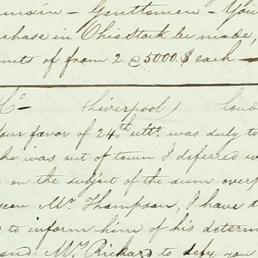 Gentlemen — You
chase in Ohio Stock be made,
of from 2 @ 5000.$ each —
Co Liverpool)
our favor of 24th ulto. was duly to
he was out of town I deferred w
on the subject of the sum overp
Mr Thompson, I have t
to inform him of his determ
Mr. Richard to defy, you